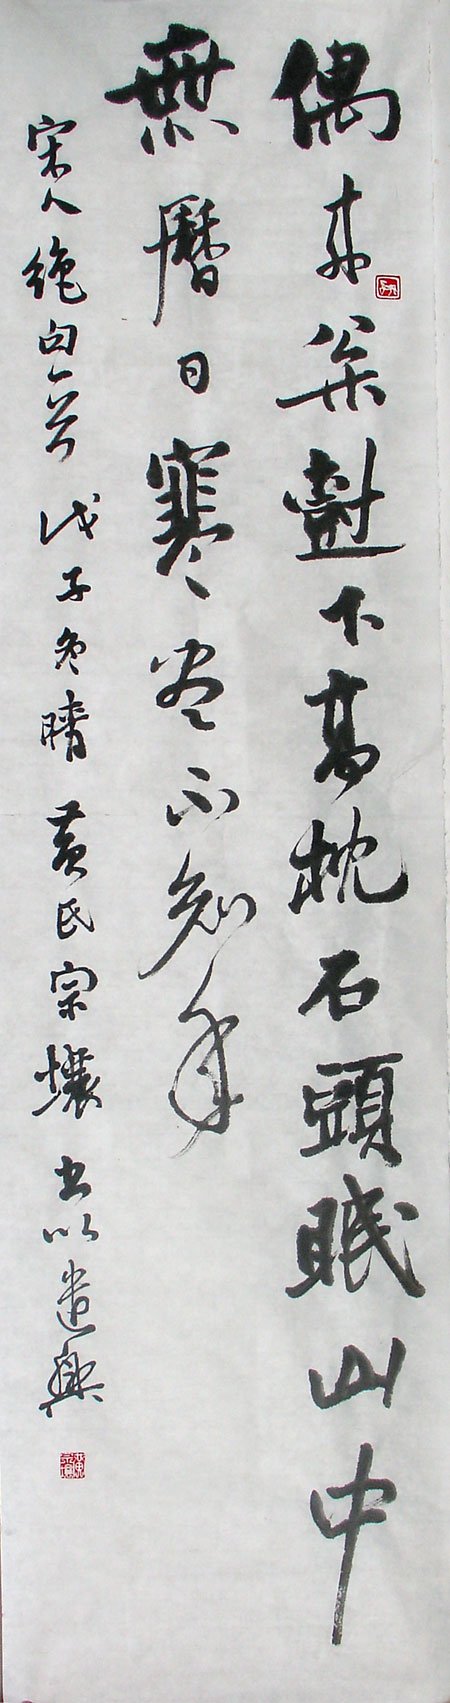 偶来枀樹下高枕石頭眠山中
無曆日寒尽不知年
宋人絶句一首 戊子冬晴 黄氏宗壤 书以遣興